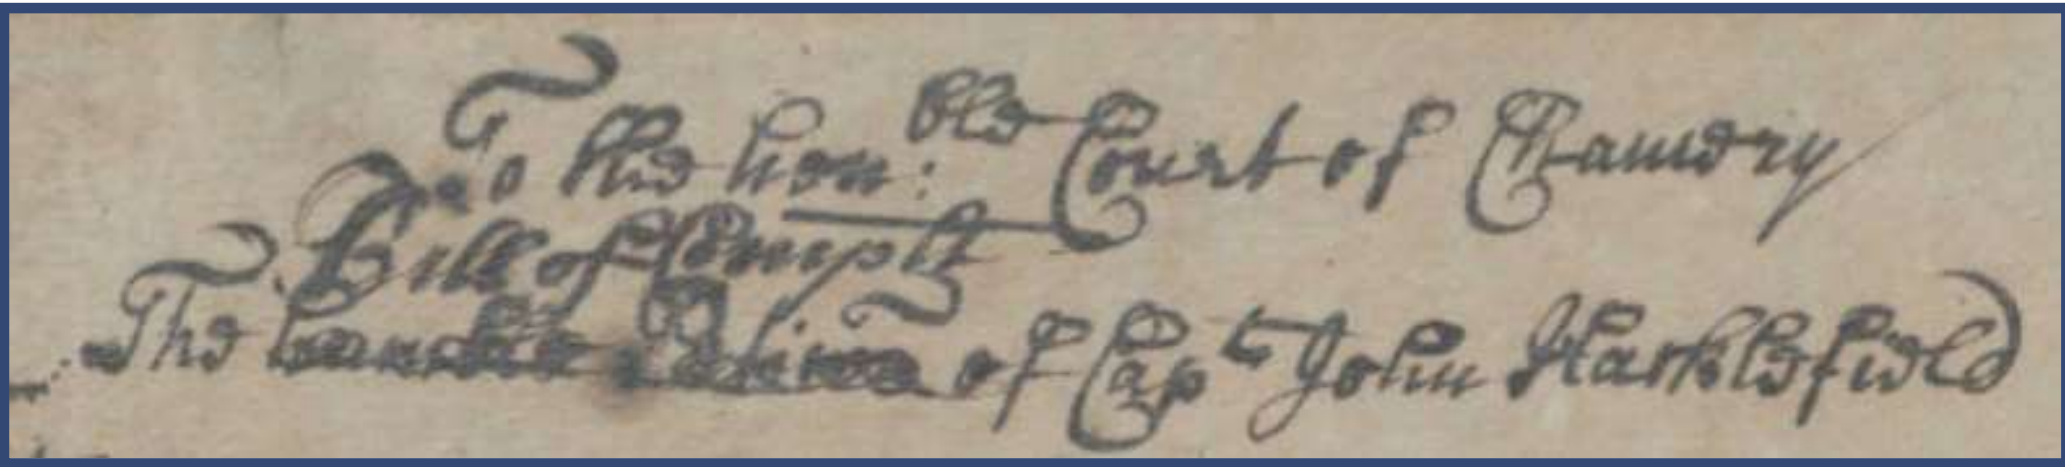 To the hon:ble Court of Chancery
Bill of Complt
The of Capt John Harklefield